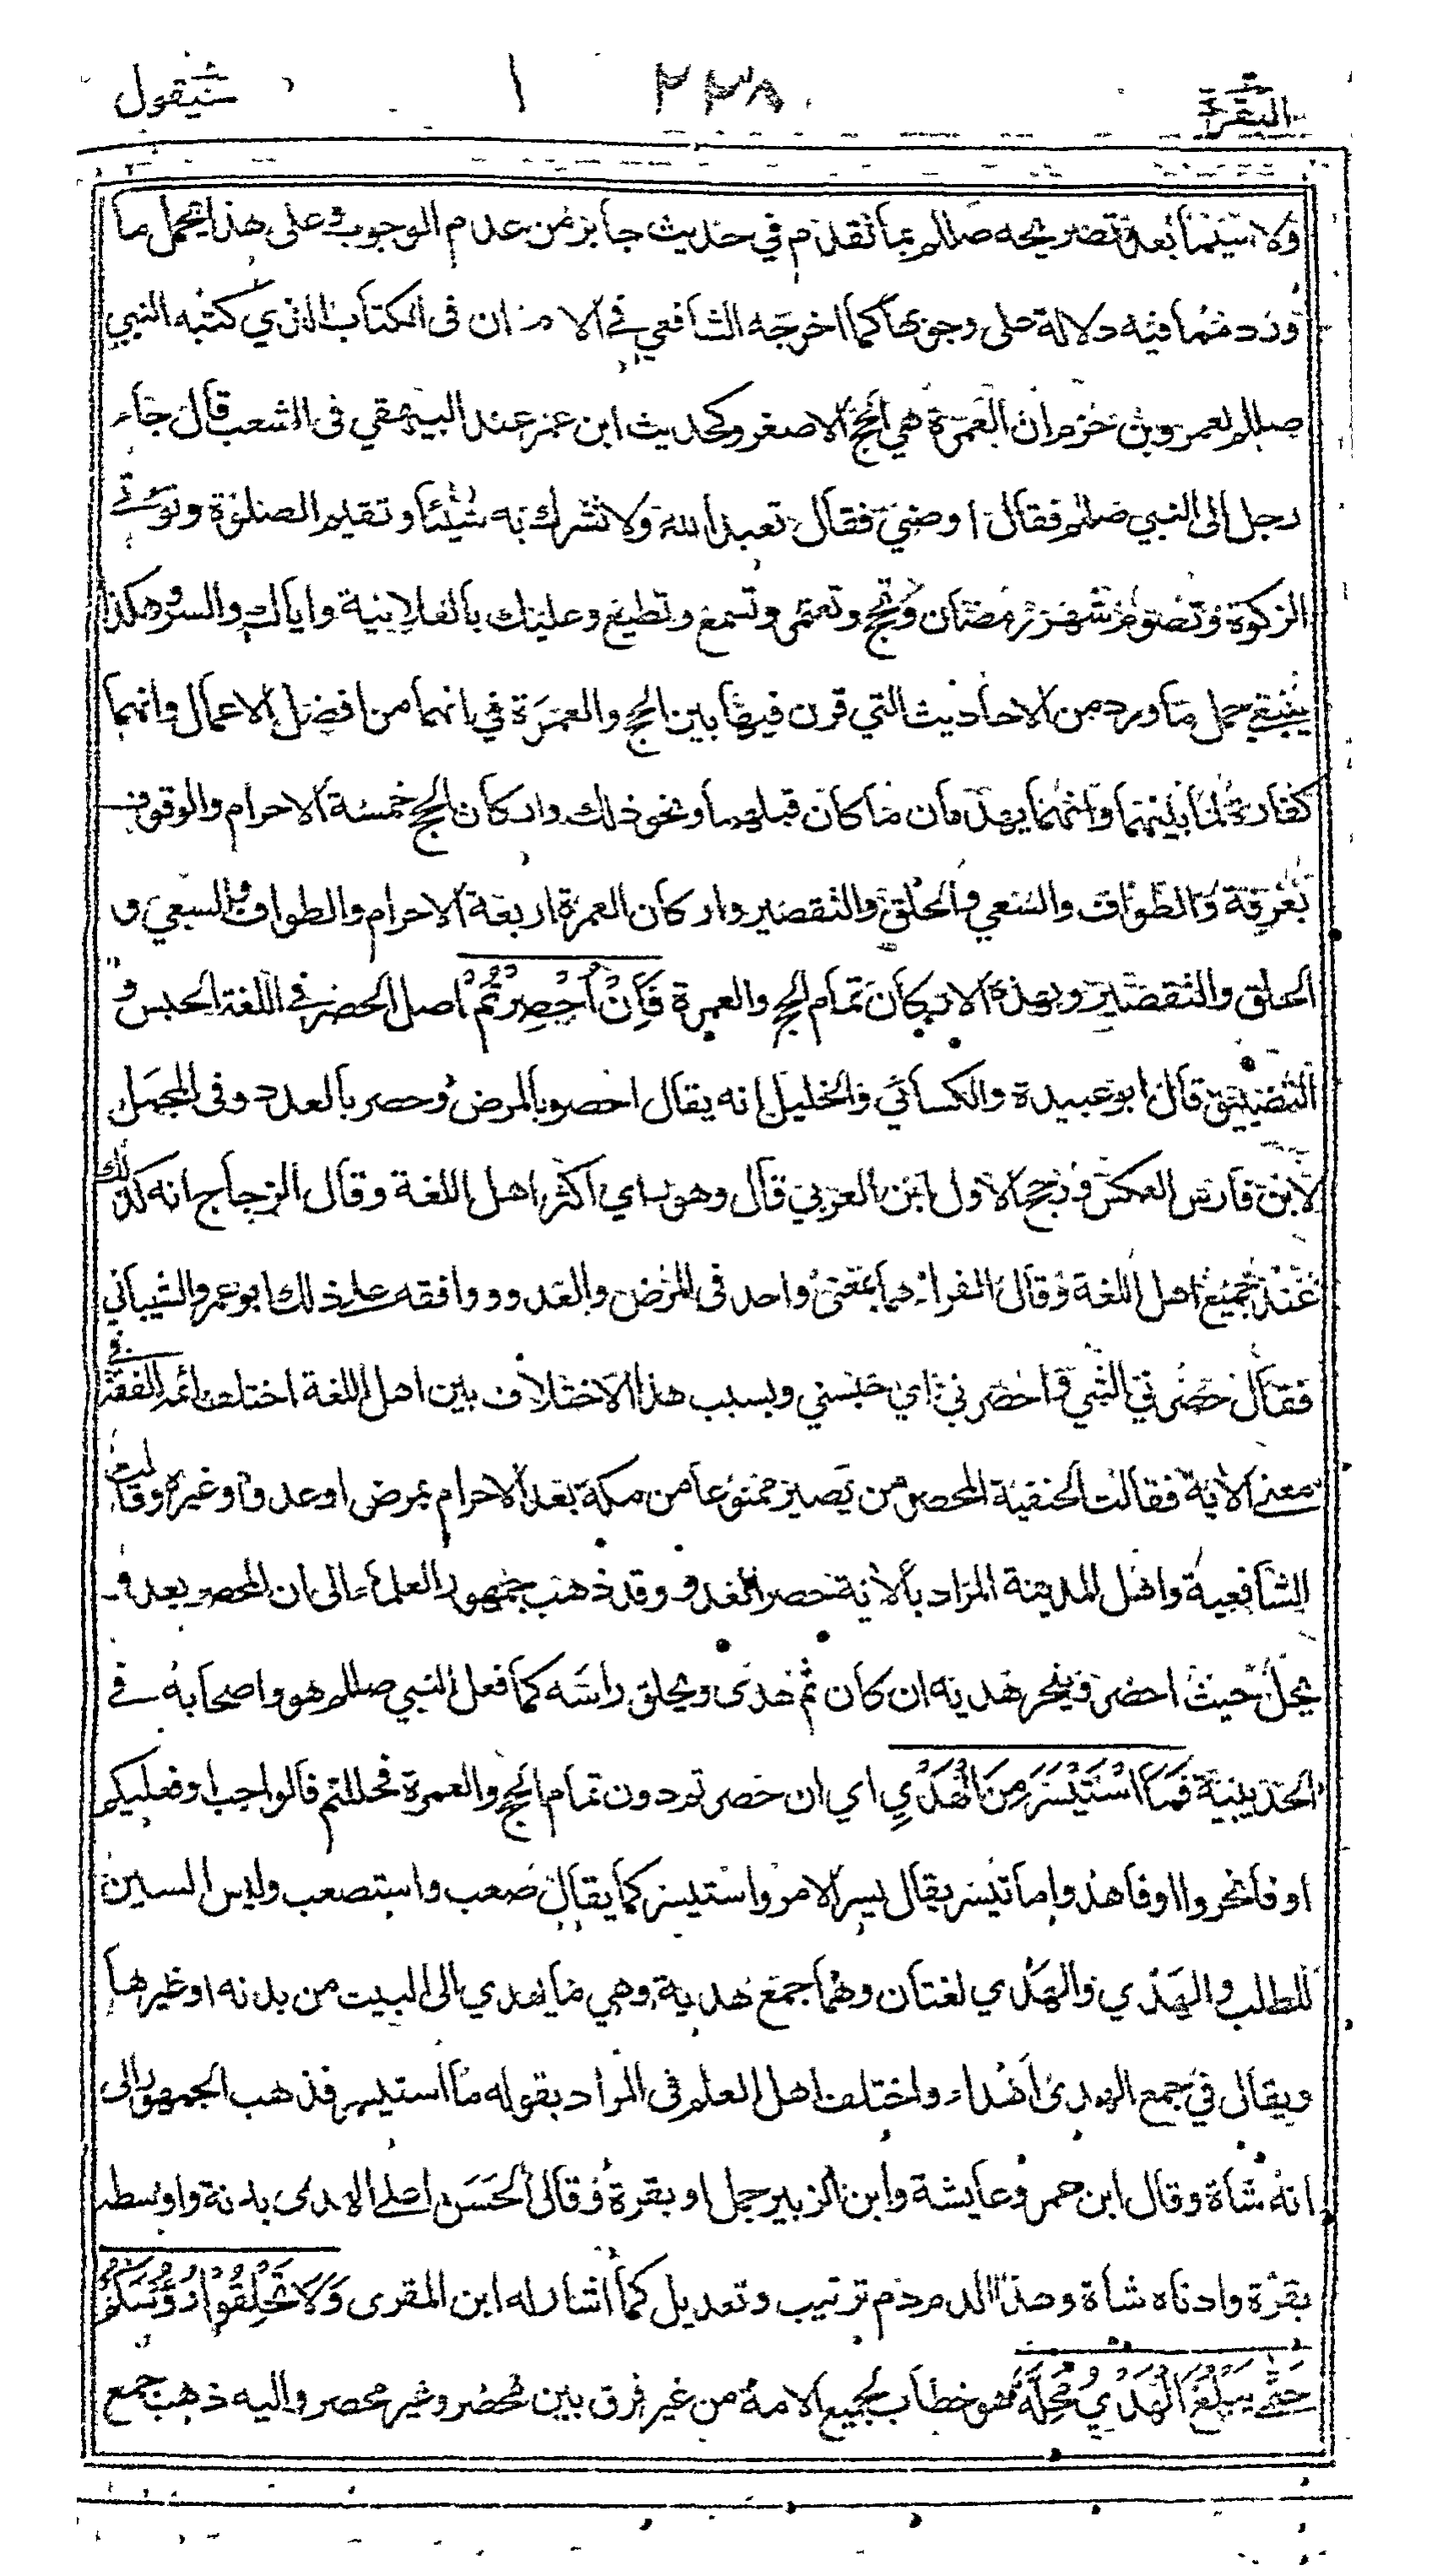 البقرة ٢٣٨ ١ سيقول
ولا سيما بعد تصريحه صللم بما تقدم في حديث جابر من عدم الوجوب وعلى هذا يحمل ما
ورد مما فيه دلالة على وجوبها كما اخرجه الشافعي في الام ان في الكتاب الذي كتبه النبي
صللم لعمرو بن حزم ان العمرة هي الحج الاصغر وكحديث ابن عمر عند البيهقي في الشعب قال جاء
رجل الى النبي صللم فقال اوصني فقال تعبد الله ولا تشرك به شيئا وتقيم الصلوة وتؤتي
الزكوة وتصوم شهر رمضان وتحج وتعتمر وتسمع وتطيع وعليك بالعلانية واياك والسر وهكذا
ينبغي حمل ما ورد من الاحاديث التي قرن فيها بين الحج والعمرة في انهما من افضل الاعمال وانهما
كفارة لما بينهما وانهما يهدمان ما كان قبلهما ونحو ذلك واركان الحج خمسة الاحرام والوقوف
بعرفة والطواف والسعي والحلق والتقصير واركان العمرة اربعة الاحرام والطواف والسعي و
الحلق والتقصير وبهذه الاركان تمام الحج والعمرة فَإِنْ أُحْصِرْتُمْ اصل الحصر في اللغة الحبس و
التضييق قال ابو عبيدة والكسائي والخليل انه يقال احصر بالمرض وحصر بالعدو وفي المجمل
لابن فارس العكس ورجح الاول ابن العربي قال وهو راي اكثر اهل اللغة وقال الزجاج انه كذلك
عند جميع اهل اللغة وقال الفراء هما بمعنى واحد في المرض والعدو ووافقه على ذلك ابو عمرو الشيباني
فقال حصرني الشي واحصرني اي حبسني وبسبب هذا الاختلاف بين اهل اللغة اختلف ائمة الفقه في
معنى الاية فقالت الحنفية المحصر من يصير ممنوعا من مكة بعد الاحرام بمرض او عدو او غيره وقالت
الشافعية واهل المدينة المراد بالاية حصر العدو وقد ذهب جمهور العلماء الى ان المحصر بعدو
يحل حيث احصر فينحر هديه ان كان ثم هدى ويحلق راسه كما فعل النبي صللم هو واصحابه في
الحديبية فَمَا اسْتَيْسَرَ مِنَ الْهَدْيِ اي ان حصرتم دون تمام الحج والعمرة فحللتم فالواجب او فعليكم
او فانحروا او فاهدوا ما تيسر يقال يسر الامر واستيسر كما يقال صعب واستصعب وليس السين
للطلب والهَدْي والهَدِي لغتان وهما جمع هدية وهي ما يهدي الى البيت من بدنه او غيرها
ويقال في جمع الهدى اهداء واختلف اهل العلم في المراد بقوله ما استيسر فذهب الجمهور الى
انه شاة وقال ابن عمر وعايشة وابن الزبير جمل او بقرة وقال الحسن اعلى الهدى بدنة واوسطه
بقرة وادناه شاة وهذا الدم دم ترتيب وتعديل كما اشار له ابن المقرى وَلَا تَحْلِقُوا رُءُوسَكُمْ
حَتَّى يَبْلُغَ الْهَدْيُ مَحِلَّهُ هو خطاب لجميع الامة من غير فرق بين محصر وغير محصر واليه ذهب جمع